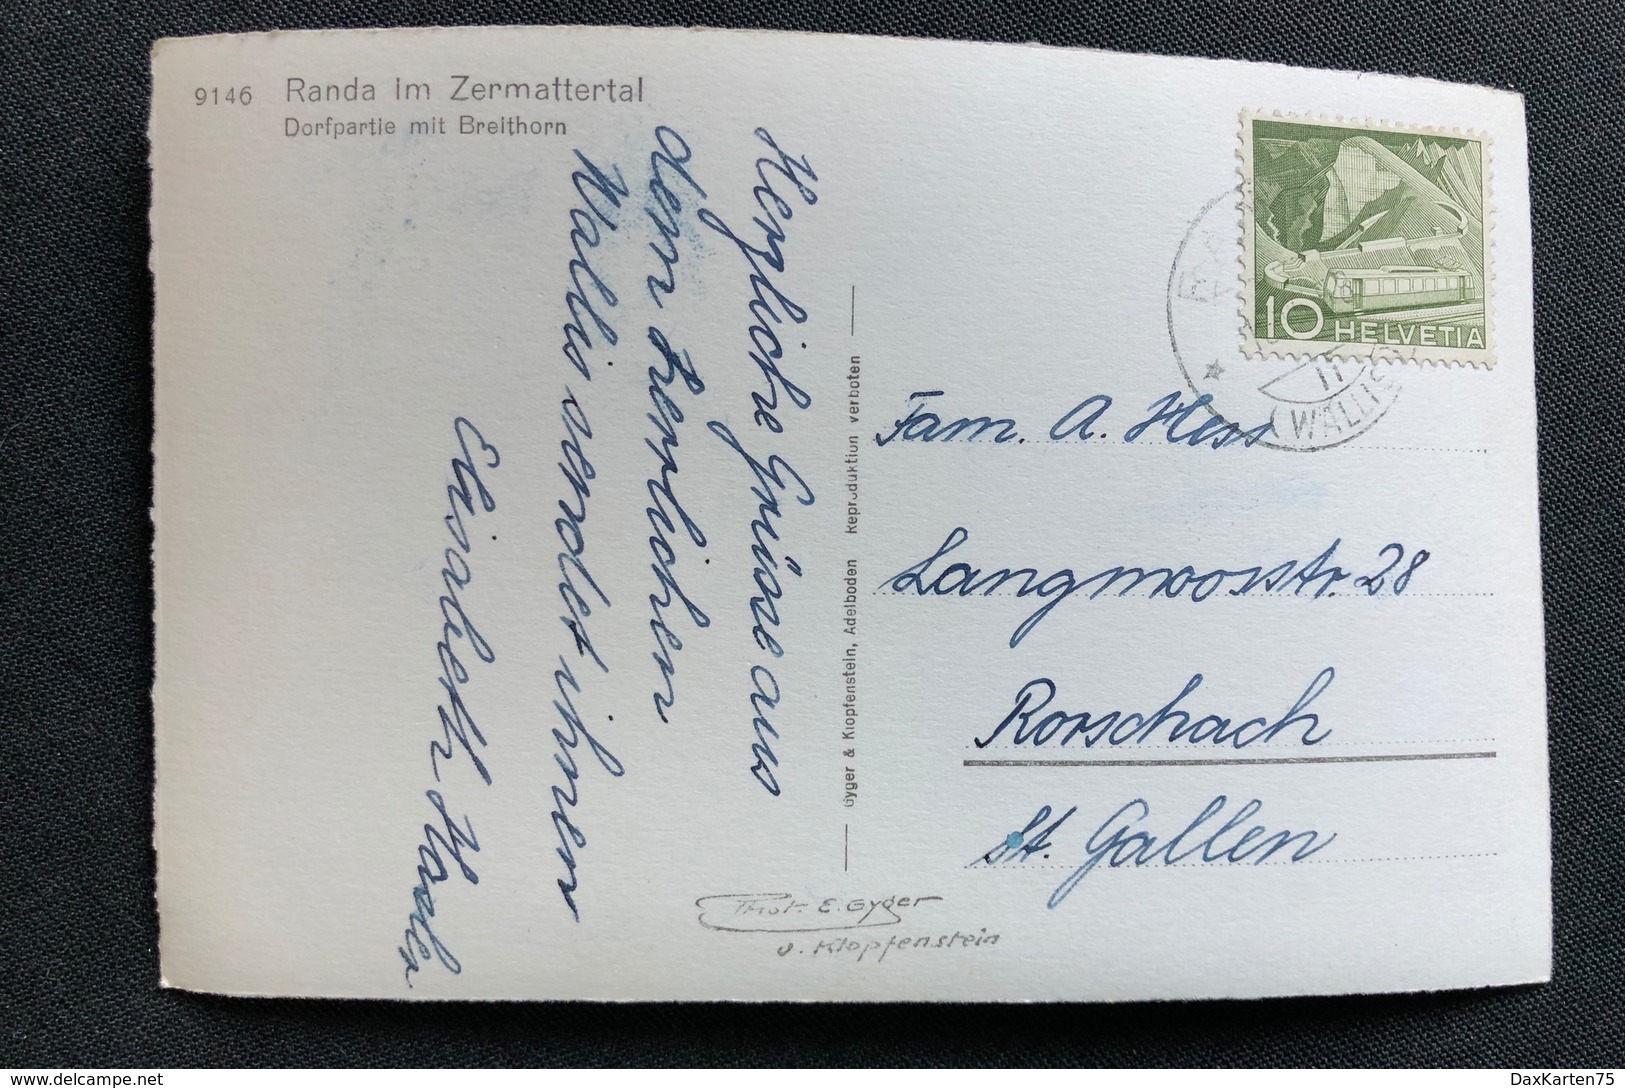 9146 Randa im Zermattertal
Dorfpartie mit Breithorn
Herzliche Grüsse aus
dem herrlichen
Wallis sendet ihnen
Elisabeth
Gyger & Klopfenstein, Adelboden Reproduktion verboten
10 HELVETIA
(WALLIS)
Fam. A. Hess
Langmoosstr. 28
Rorschach
St. Gallen
Phot. E. Gyger
u. Klopfenstein
delcampe.net
DaxKarten75